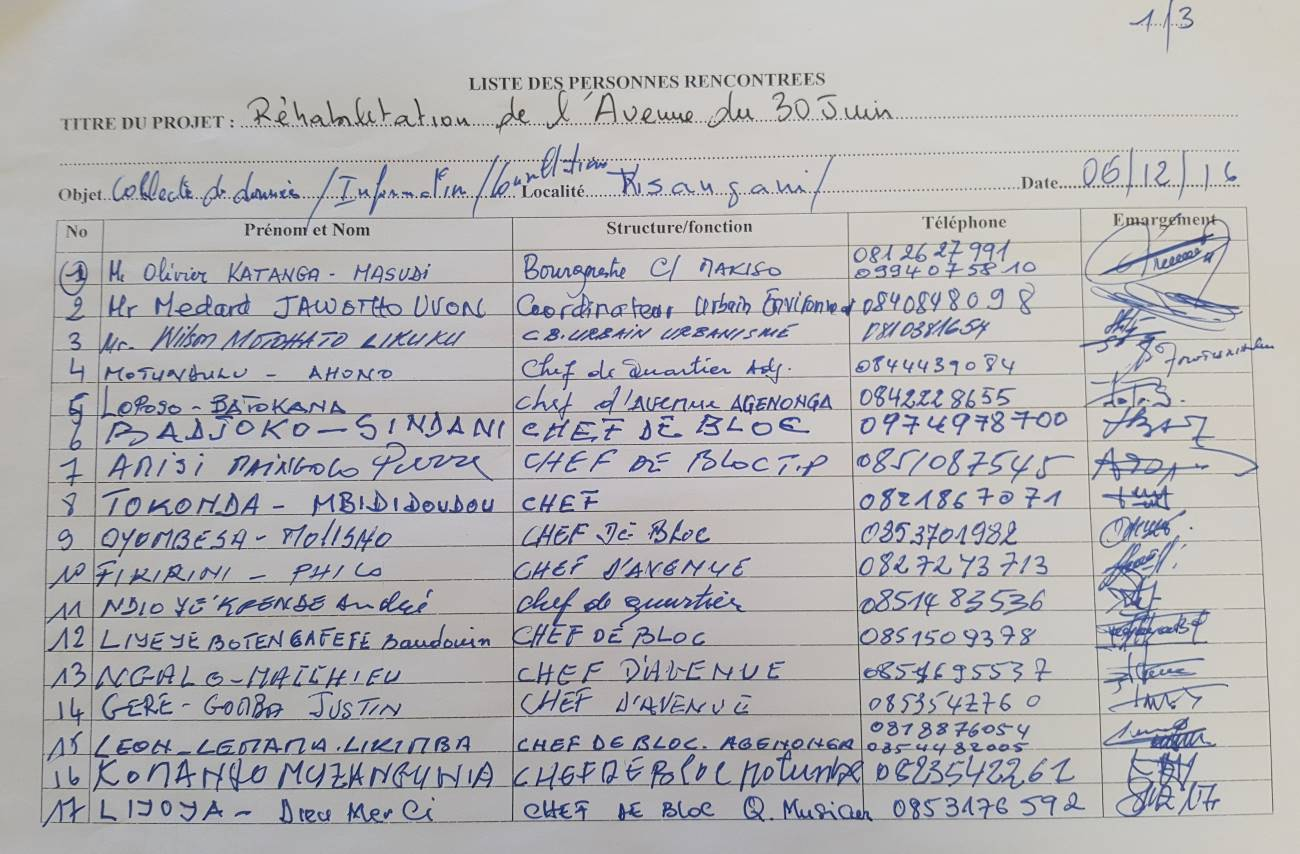 1/3
LISTE DES PERSONNES RENCONTREES
TITRE DU PROJET : Réhabilitation de l'Avenue du 30 Juin
Objet Collecte de données / Information / Consultation Localité Kisangani / Date 06/12/16
No Prénom et Nom Structure/fonction Téléphone Emargement
1 Mr Olivier KATANGA - MASUDI Bourgmestre C/ MAKISO 0812627991 0994075810
2 Mr Medard JAWOTHO UVON Coordinateur Urbain Environnet 0840848098
3 Mr. Wilson MOTOHATO LIKUKU C.B. URBAIN URBANISME 0810381654
4 MOTUNDULU - AHONO Chef de Quartier Adj. 0844439084
5 LOPOSO - BATOKANA chef d'AVENUE AGENONGA 0842228655
6 BADJOKO - SINDANI CHEF DE BLOC 0974978700
7 AMISI MAINGOLO Pierre CHEF DE BLOC T.P 0851087545
8 TOKONDA - MBIDIDOUDOU CHEF 0821867071
9 OYOMBESA - MOLISHO CHEF DE BLOC 0853701982
10 FIKIRINI - PHILO CHEF D'AVENUE 0827273713
11 NDIO YE'KPENDE André chef de quartier 0851483536
12 LIYEYE BOTENGAFEFE Baudouin CHEF DE BLOC 0851509378
13 NGALO - MATCHIEU CHEF D'AVENUE 0851695537
14 GERE - GOMBA JUSTIN CHEF D'AVENUE 0853542760
15 LEON - LEMAMA . LIKIMBA CHEF DE BLOC . AGENONGA 0818876054 0854482005
16 KOMANYO MUZANGUNIA CHEF DE BLOC Motumbe 0823542261
17 LIYOYA - Dieu Merci CHEF DE BLOC Q. Musicien 0853176592